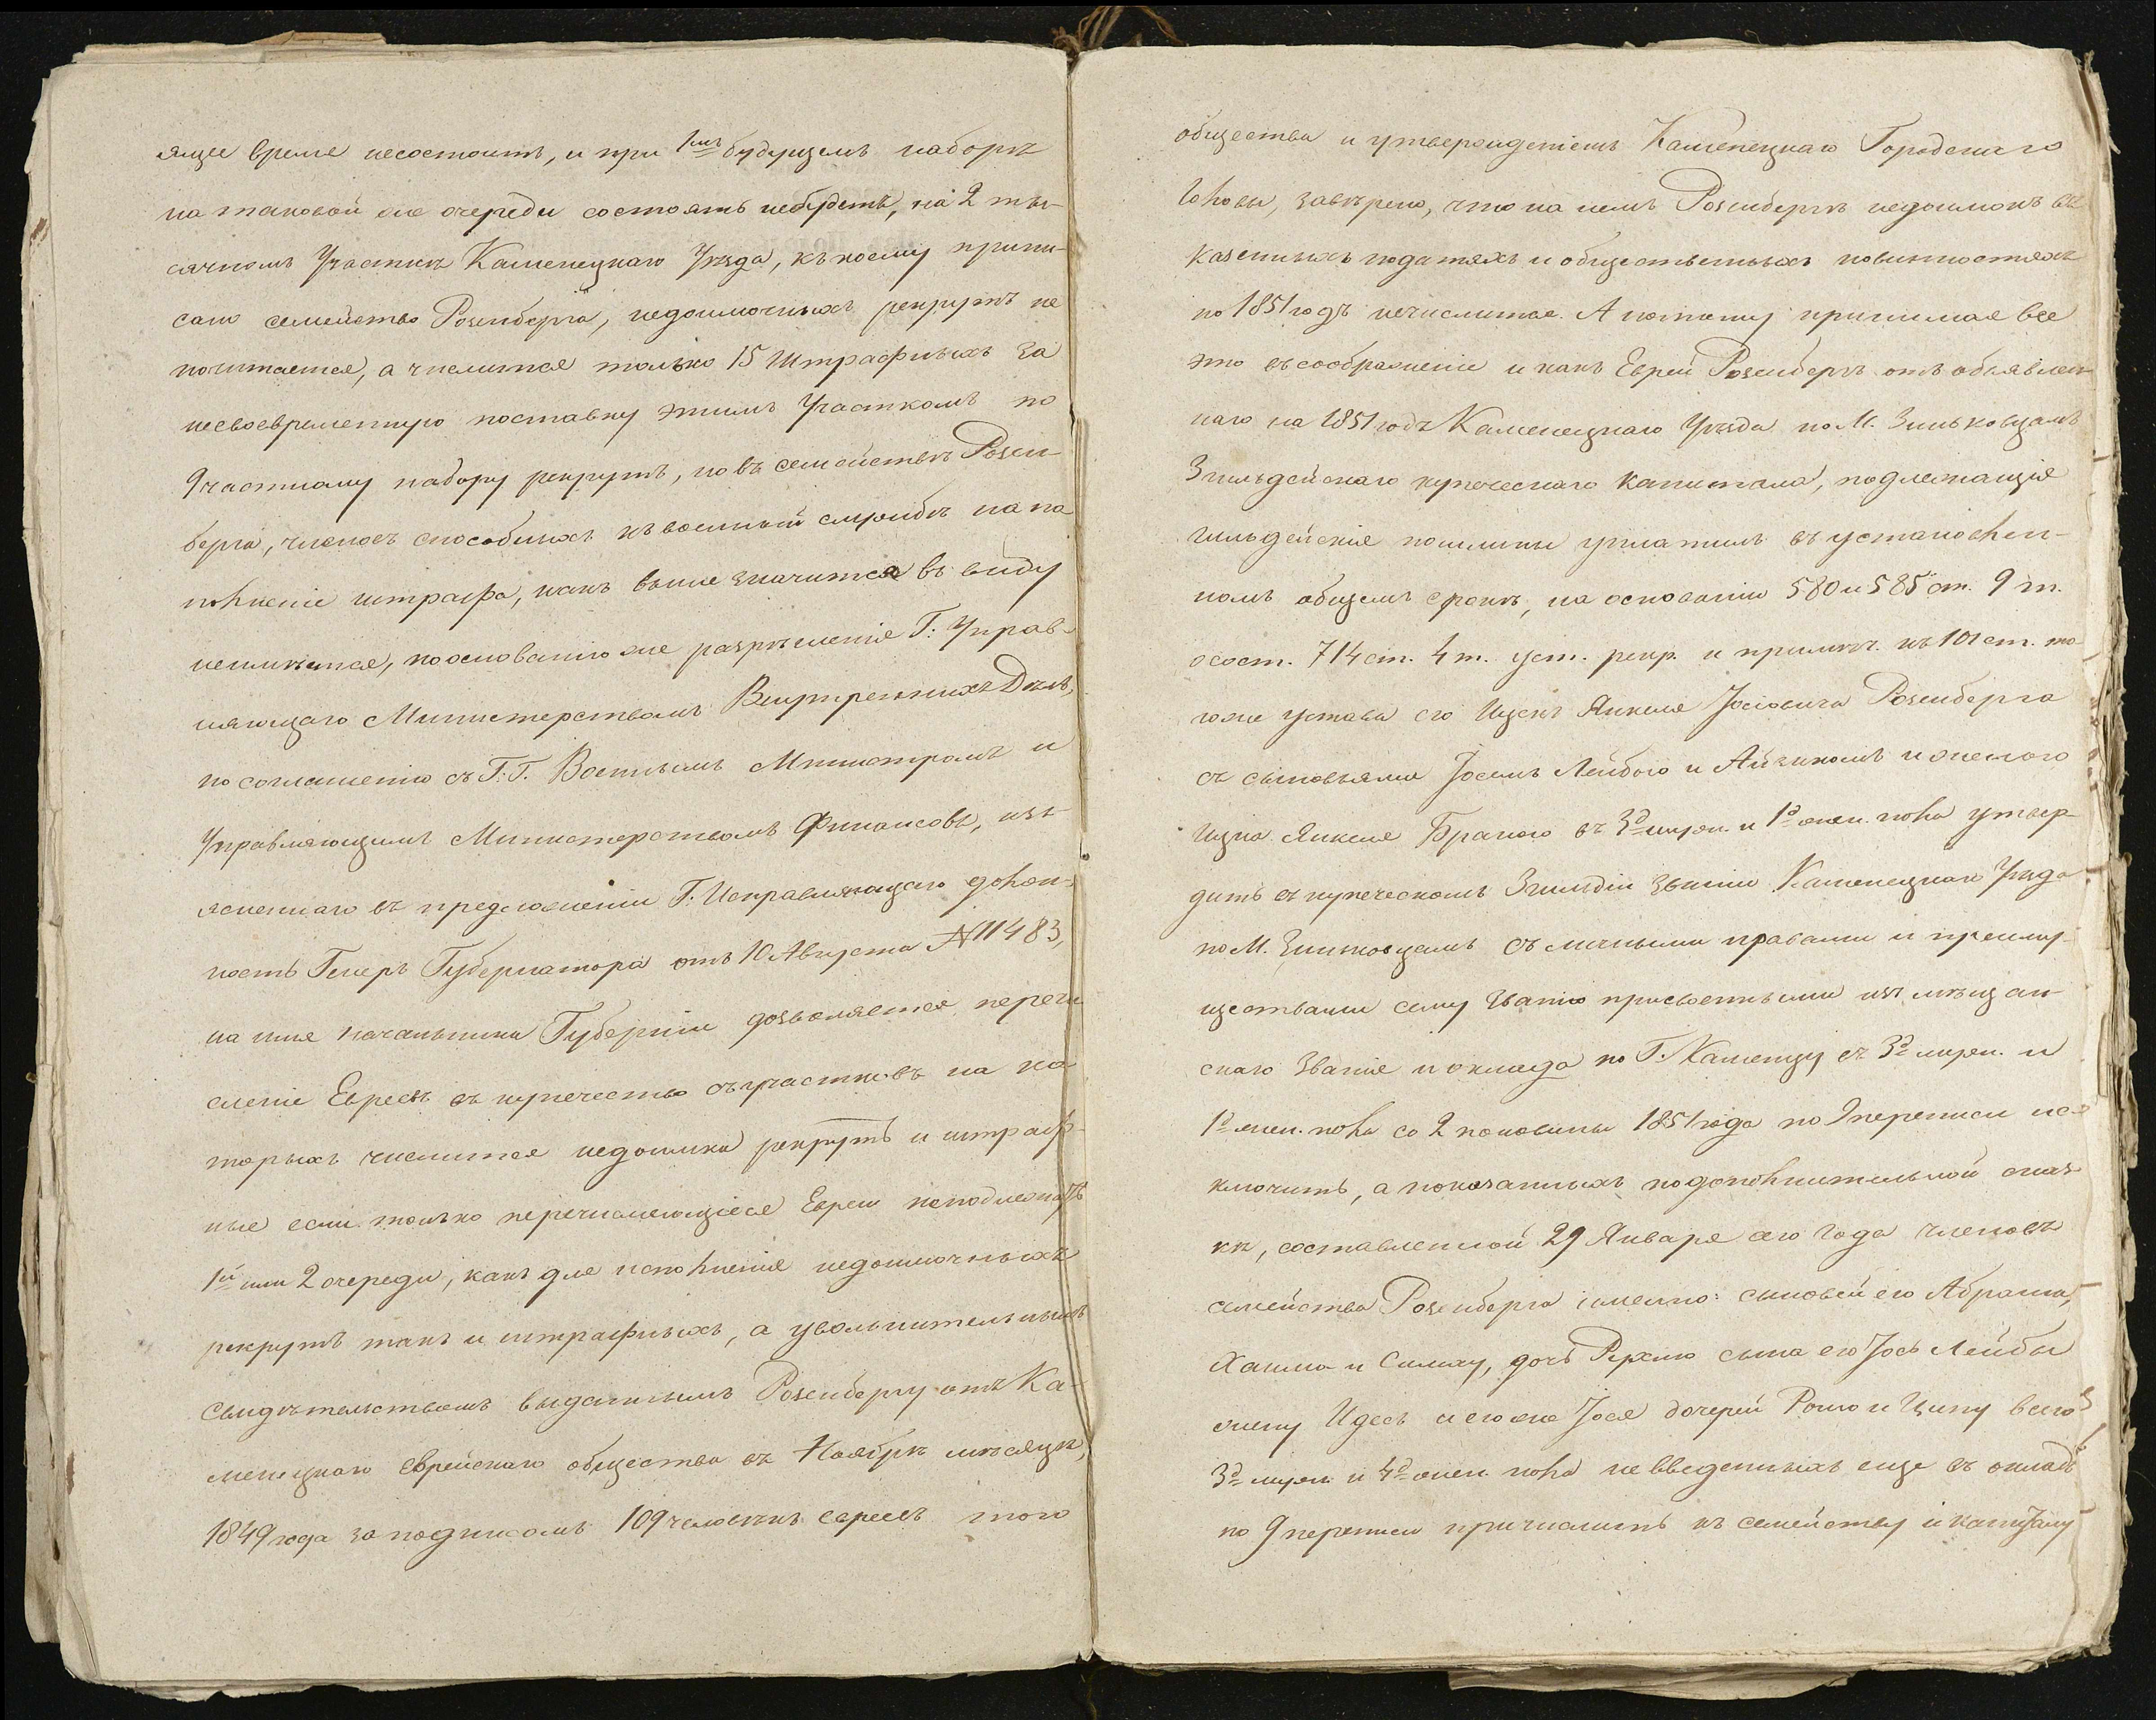 ящее время несостоитъ, и при 1мъ будущемъ наборѣ
на таковой же очереди состоять небудетъ, на 2 ты-
сячномъ Участкѣ Каменецкаго Уѣзда, къ коему припи-
сано семейство Розенберга, недоимочныхъ рекрутъ не
почитается, а числится только 15 штрафныхъ за
несвоевременную поставку этимъ Участкомъ по
9 частному набору рекрутъ, но въ семействѣ Розен-
берга, членовъ способныхъ къ военной службѣ на по
полненіе штрафа, какъ выше значится въ виду
неимѣется, по основанію же разрѣшенія Г: Управ-
ляющаго Министерствомъ Внутреннихъ Дѣлъ,
по соглашенію съ Г:Г. Военнымъ Министромъ и
Управляющимъ Министерствомъ Финансовъ, изъ-
ясненнаго въ предложеніи Г: Исправляющаго долж-
ность Генеръ Губернатора отъ 10 Августа № 11483,
на имя Начальника Губерніи дозволяется перечи
сленіе Евреевъ въ купечество съ участковъ на ко
торыхъ числится недоимка рекрутъ и штраф-
ные если только перечисляющіеся Евреи неподлежатъ
1й или 2 очереди, какъ для исполненія недоимочныхъ
рекрутъ такъ и штрафныхъ, а увольнительнымъ
свидѣтельствомъ выданнымъ Розенбергу отъ Ка-
менецкаго Еврейскаго общества въ Ноябрѣ мѣсяцѣ,
1849 года за подписомъ 109 человѣкъ евреевъ того
общества и утвержденіемъ Каменецкаго Городскаго
Головы, завѣрено, что на немъ Розенбергѣ недоимокъ въ
казенныхъ податяхъ и общественныхъ повинностяхъ
по 1851 годъ нечислится. А потому принимая все
это въ соображеніе и какъ Еврей Розенбергъ отъ объявлен-
наго на 1851 годъ Каменецкаго Уѣзда по М. Зиньковцамъ
3 гильдейскаго купеческаго капитала, подлежащія
гильдейскія пошлины уплатилъ въ установлен-
номъ общемъ срокѣ, на основаніи 580 и 585 ст. 9 т.
о сост. 714 ст. 4 т. уст. рекр. и примѣч. къ 101 ст. то-
гоже устава его Ицекъ Янкеля Іосіовича Розенберга
съ сыновьями Іосемъ Лейбою и Айзикомъ и женою
Ицка Янкеля Браною въ 3д муж. и 1д жен. пола утвер-
дить въ купеческомъ 3 гильдіи званіи Каменецкаго Уѣзда
по М. Зиньковцамъ съ личными правами и преиму-
ществами сему званію присвоенными изъ мѣщан-
скаго званія и оклада по Г. Каменцу въ 3д муж. и
1д жен. пола со 2 половины 1851 года по 9 переписи ис-
ключить, а показанныхъ по дополнительной сказ-
кѣ, составленной 29 Января сего года членовъ
семейства Розенберга именно: сыновей его Абрама,
Хаима и Симху, дочь Рухлю сына его Іось Лейбы
жену Идесъ и егоже Іося дочерей Роню и Ципу всего
3д муж. и 4д жен. пола не введенныхъ еще въ окладъ
по 9 переписи причислить къ семейству и капиталу